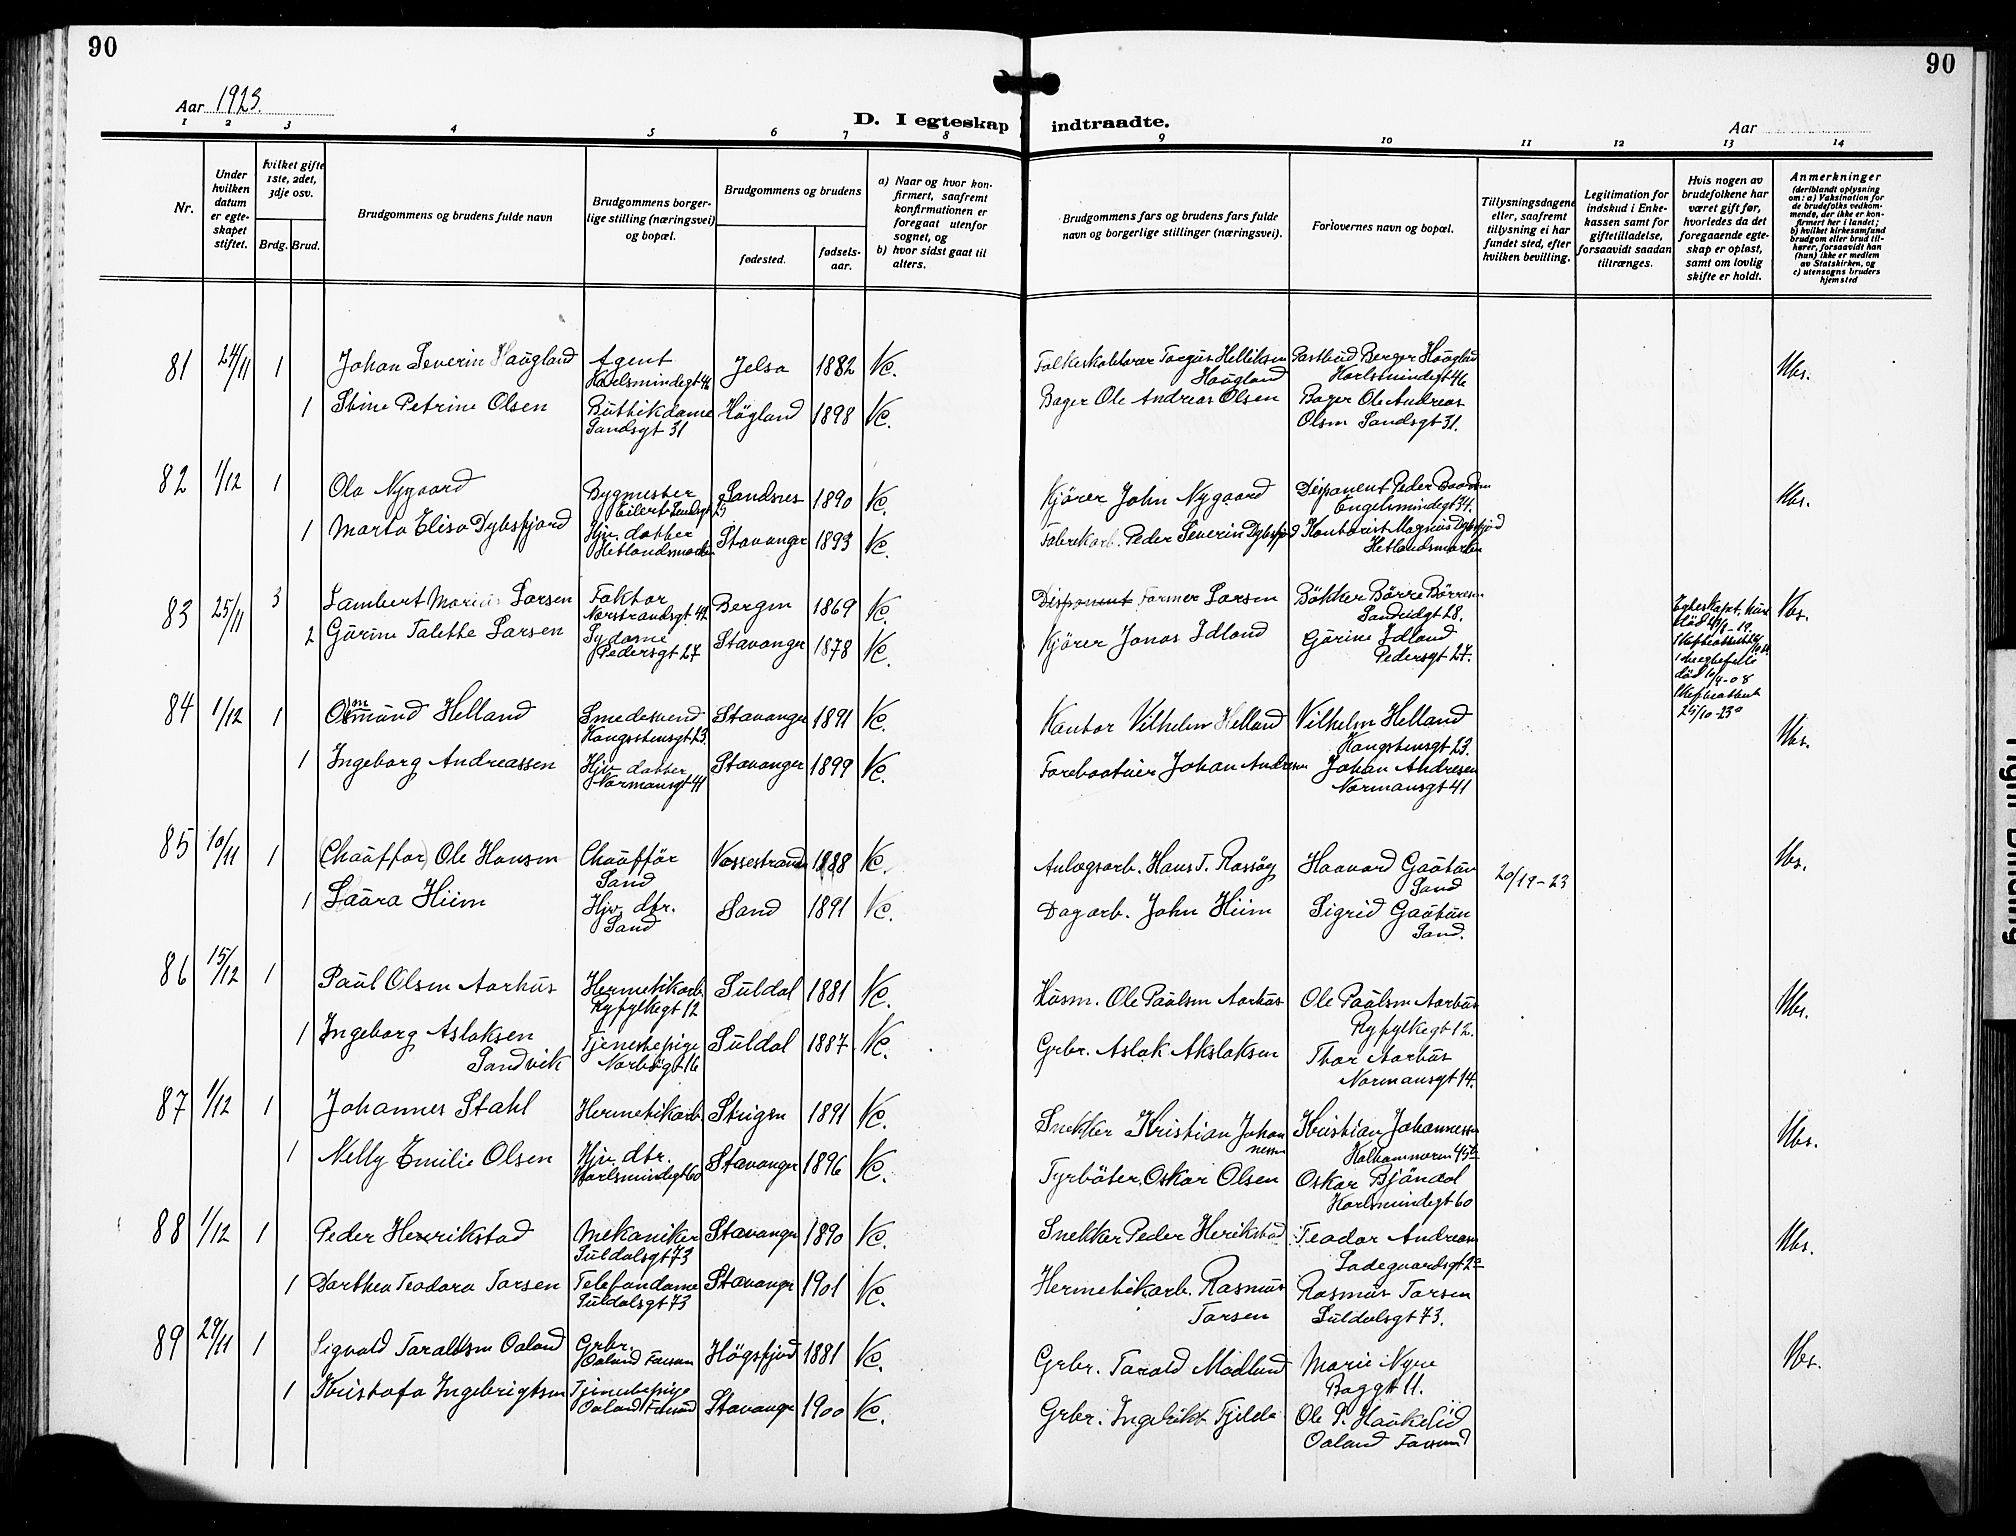 90
90
Aar 1923.
D. I egteskap indtraadte.
Aar
1 2 3 4 5 6 7 8 9 10 11 12 13 14
Nr.
Under hvilken datum er egte-skapet stiftet.
hvilket gifte 1ste, 2det, 3dje osv.
Brdg. Brud.
Brudgommens og brudens fulde navn
Brudgommens borger-lige stilling (næringsvei) og bopæl.
Brudgommens og brudens
fødested.
fødsels-aar.
a) Naar og hvor kon-firmert, saafremt konfirmationen er foregaat utenfor sognet, og
b) hvor sidst gaat til alters.
Brudgommens fars og brudens fars fulde navn og borgerlige stillinger (næringsvei).
Forlovernes navn og bopæl.
Tillysningsdagene eller, saafremt tillysning ei har fundet sted, efter hvilken bevilling.
Legitimation for indskud i Enke-kassen samt for giftetilladelse, forsaavidt saadan tiltrænges.
Hvis nogen av brudefolkene har været gift før, hvorledes da det foregaaende egte-skap er opløst, samt om lovlig skifte er holdt.
Anmerkninger
(deriblandt oplysning om: a) Vaksination for de brudefolks vedkom-mende, der ikke er kon-firmert her i landet; b) hvilket kirkesamfund brudgom eller brud til-hører, forsaavidt han (hun) ikke er medlem av Statskirken, og c) utensogns bruders hjemsted
81 24/11 1 Johan Severin Haugland Agent Karlsmindegt 46 Jelsa 1882 Vc. Torgus Helliksen Haugland Postbud Berger Haugland Karlsmindegt 46 Vbs.
1 Stine Petrine Olsen Butikdame Sandsgt 31 Högland 1898 Vc. Bager Ole Andreas Olsen Bager Ole Andreas Olsen Sandsgt 31.
82 1/12 1 Ola Nygaard Bygmester Sandnes 1890 Vc. Kjörer John Nygaard Disponent Peder Engelsmindegt 34. Vbs.
1 Marta Elisa Dybsfjord Hjv. datter Hetlandsmarken Stavanger 1893 Vc. Fabrikarb. Peder Severin Dybsfjord Kontorist Magnus Dybsfjord Hetlandsmarken
83 25/11 3 Lambert Marius Larsen Faktor Norstrandsgt. 42 Bergen 1869 Vc. Disponent Former Larsen Bökker Börre Börresen Sandeidgt 28. Vbs.
2 Gürine Talette Larsen Sydame Pedersgt 27 Stavanger 1878 Vc. Kjörer Jonas Idland Gürine Idland Pedersgt 27.
25/10-23
84 1/12 1 Osmund Helland Smedesvend Kongstensgt. 23. Stavanger 1891 Vc. Kantor Vilhelm Helland Vilhelm Helland Kongstensgt 23. Vbs.
1 Ingeborg Andreassen Hjv. datter Normansgt 41 Stavanger 1899 Vc. Johan Andresen Johan Andresen Normansgt 41
85 10/11 1 (Chauffør) Ole Hansen Chauffør Sand Vossestranden 1888 Vc. Anlægsarb. Hans T. Haavard Gautun Sand 20/19-23 Vbs.
1 Laura Hiim Hjv. dtr. Sand Sand 1891 Vc. Dagarb. John Hiim Sigrid Gautun Sand.
86 15/12 1 Paul Olsen Aarhus Hermetikarb. Ryfylkegt 12 Suldal 1881 Vc. Husm. Ole Paulsen Aarhus Ole Paulsen Aarhus Ryfylkegt 12. Vbs.
1 Ingeborg Aslaksen Sandvik Tjenestepige Norbögt 16 Suldal 1887 Vc. Grbr. Aslak Akslaksen Thor Aarhus Normansgt 14.
87 1/12 1 Johannes Stahl Hermetikarb. 1891 Vc. Snekker Kristian Johannesen Kristian Johannessen Kalhammaren 45b Vbs.
1 Nelly Emilie Olsen Hjv. dtr. Karlsmindegt 60 Stavanger 1896 Vc. Fyrböter Oskar Olsen Oskar Bjöndal Karlsmindegt 60
88 1/12 1 Peder Henrikstad Mekaniker Suldalsgt 73 Stavanger 1890 Vc. Snekker Peder Herikstad Teodor Andreasen Ladegaardsgt 2a Vbs.
1 Dorthea Teodora Torsen Telefondame Suldalsgt 73 Stavanger 1901 Vc. Hermetikarb. Rasmus Torsen Rasmus Torsen Suldalsgt 73.
89 29/11 1 Sigvald Taraldsen Oaland Grbr. Oaland Högsfjord 1881 Vc. Grbr. Tarald Mødland Marie Nyre Baggt 11. Vbs.
1 Kristofa Ingebrigtsen Tjenestepige Oaland Stavanger 1900 Vc. Grbr. Ingebrikt Tjelde Ole P. Haukelid Oaland